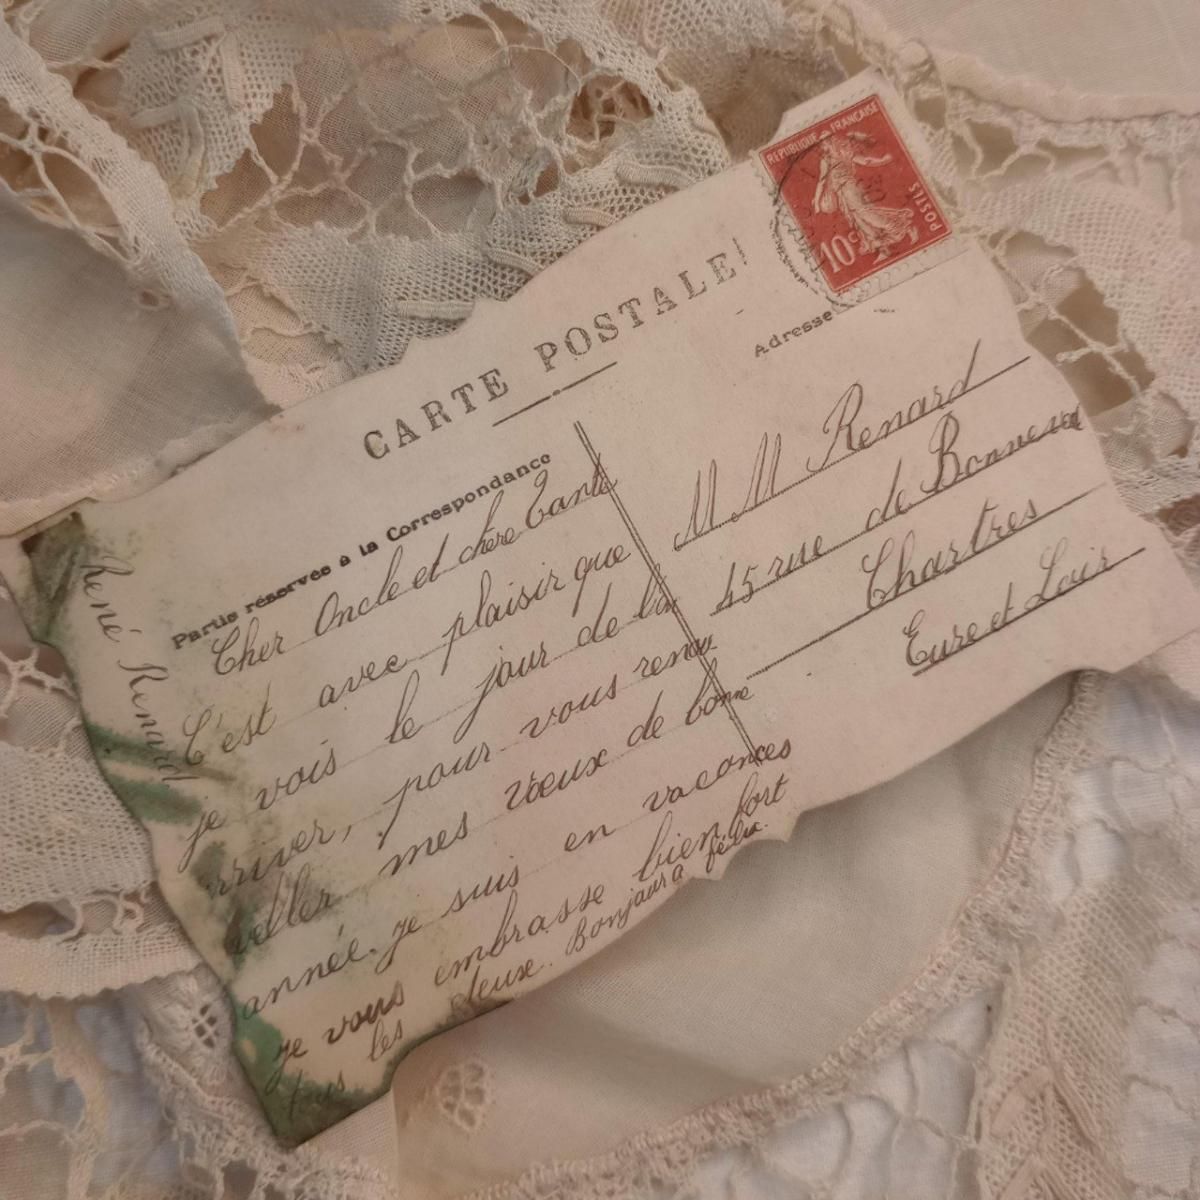 REPUBLIQUE FRANÇAISE
POSTES
10c
CARTE POSTALE
Partie réservée à la Correspondance
Adresse
Cher Oncle et chère Tante
C'est avec plaisir que
je vois le jour de l'an
rriver, pour vous renou
veller mes vœux de bonne
année. je suis en vacances
je vous embrasse bien fort
tous les deux. Bonjour a félix.
René Renard
M M Renard
45 rue de Bonneval
Chartres
Eure et Loir